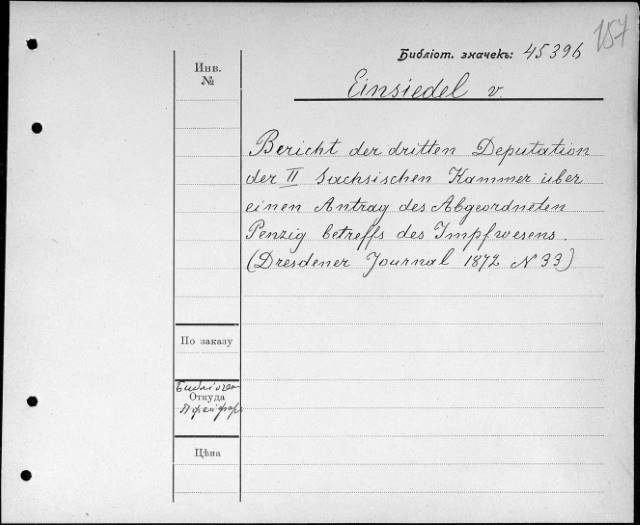 157
Библіот. значекъ: 45396
Инв.
№
Einsiedel v.
Bericht der dritten Deputation
der II Sachsischen Kammer über
einen Antrag des Abgeordneten
Penzig betreffs des Impfwesens.
(Dresdener Journal 1872 N 33)
По заказу
Откуда
Цѣна